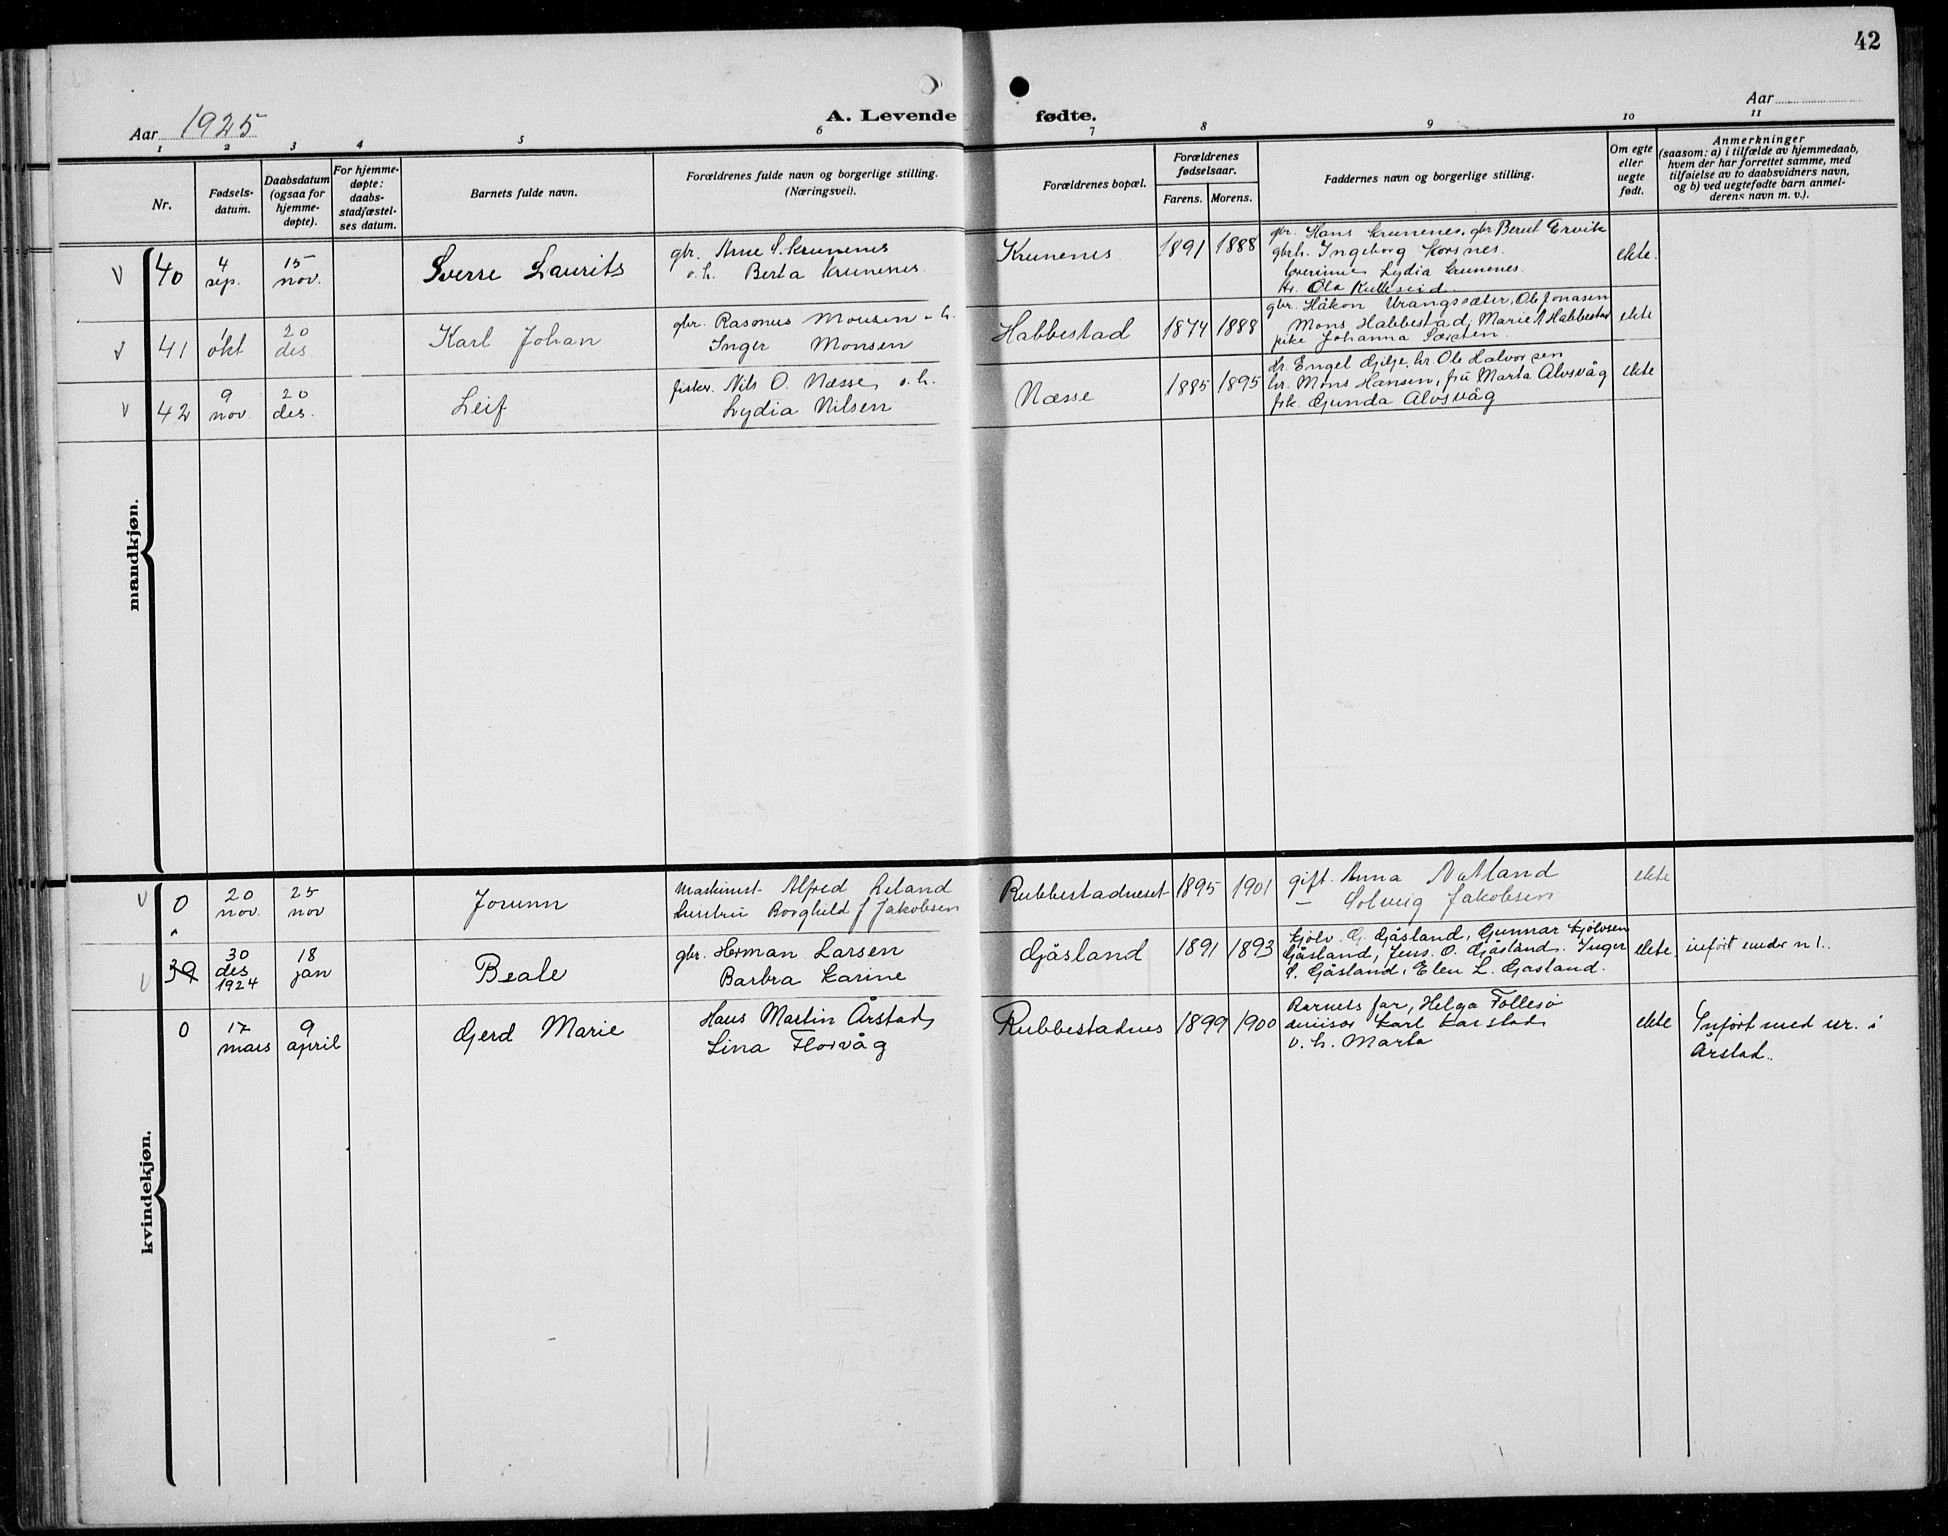 42
Aar 1925
A. Levende fødte.
Aar
1 2 3 4 5 6 7 8 9 10 11
Nr.
Fødsels-
datum.
Daabsdatum
(ogsaa for
hjemme-
døpte).
For hjemme-
døpte:
daabs-
stadfæstel-
ses datum.
Barnets fulde navn.
Forældrenes fulde navn og borgerlige stilling.
(Næringsvei).
Forældrenes bopæl.
Forældrenes
fødselsaar.
Farens. Morens.
Faddernes navn og borgerlige stilling.
Om egte
eller
uegte
født.
Anmerkninger
(saasom: a) i tilfælde av hjemmedaab,
hvem der har forrettet samme, med
tilføielse av to daabsvidners navn,
og b) ved uegtefødte barn anmel-
derens navn m. v.).
mandkjøn.
V 40
4
sep.
15
nov.
Sverre Laurits
gbr. Arne S. Krunenes
o. h. Berta Krunenes.
Krunenes 1891 1888
gbr. Hans Krunenes, gbr Bernt Ervik
gbrh. Ingeborg Korsnes.
Lydia Krunenes.
Ola Kulleseid.
ekte.
V 41
1
okt
20
des
Karl Johan
gbr. Rasmus Monsen o. h.
Inger Monsen
Habbestad 1874 1888
gbr. Håkon Urangsæter, Ole Jonasen
Mons Habbestad, Marie Habbestad
pike Johanna
ekte
V 42
9
nov.
20
des.
Leif
fisker. Nils O. Næsse, o. h.
Lydia Nilsen
Næsse 1885 1895
hr. Engel Gilje, hr. Ole Halvorsen
hr. Mons Hansen, fru Marta Alvsvåg
frk. Gunda Alvsvåg
ekte
kvindekjøn.
V 0
20
nov.
25
nov
Jorunn
Maskinist Alfred Leland
hustru Borghild f Jakobsen
Rubbestadneset 1895 1901
gift. Anna Natland
— Solveig Jakobsen
ekte
V 39
30
des
1924
18
jan
Beale
gbr. Herman Larsen
Barbra Karine
Gåsland 1891 1893
Kjølv. G. Gåsland, Gunnar Kjølvsen
Gåsland, Jens. O. Gåsland. Inger
S. Gåsland, Elen L. Gåsland.
ekte.
infört under n 1.
0
17
mars
9
april
Gerd Marie
Hans Martin Årstad,
Lina Florvåg
Rubbestadnes 1899 1900
Barnets far, Helga Follesö
Karl Karstad
o. h. Marta
ekte
Infört med nr. i
Årstad.